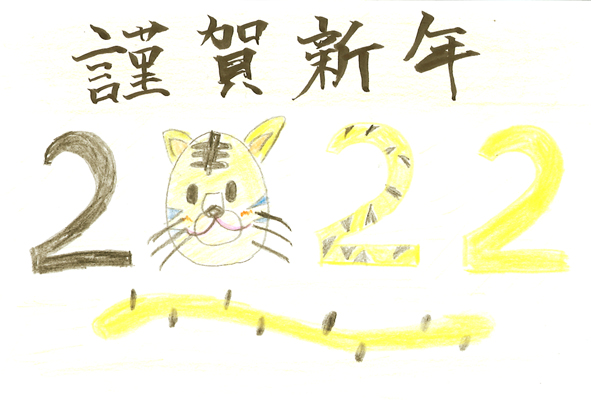 謹賀新年
2022